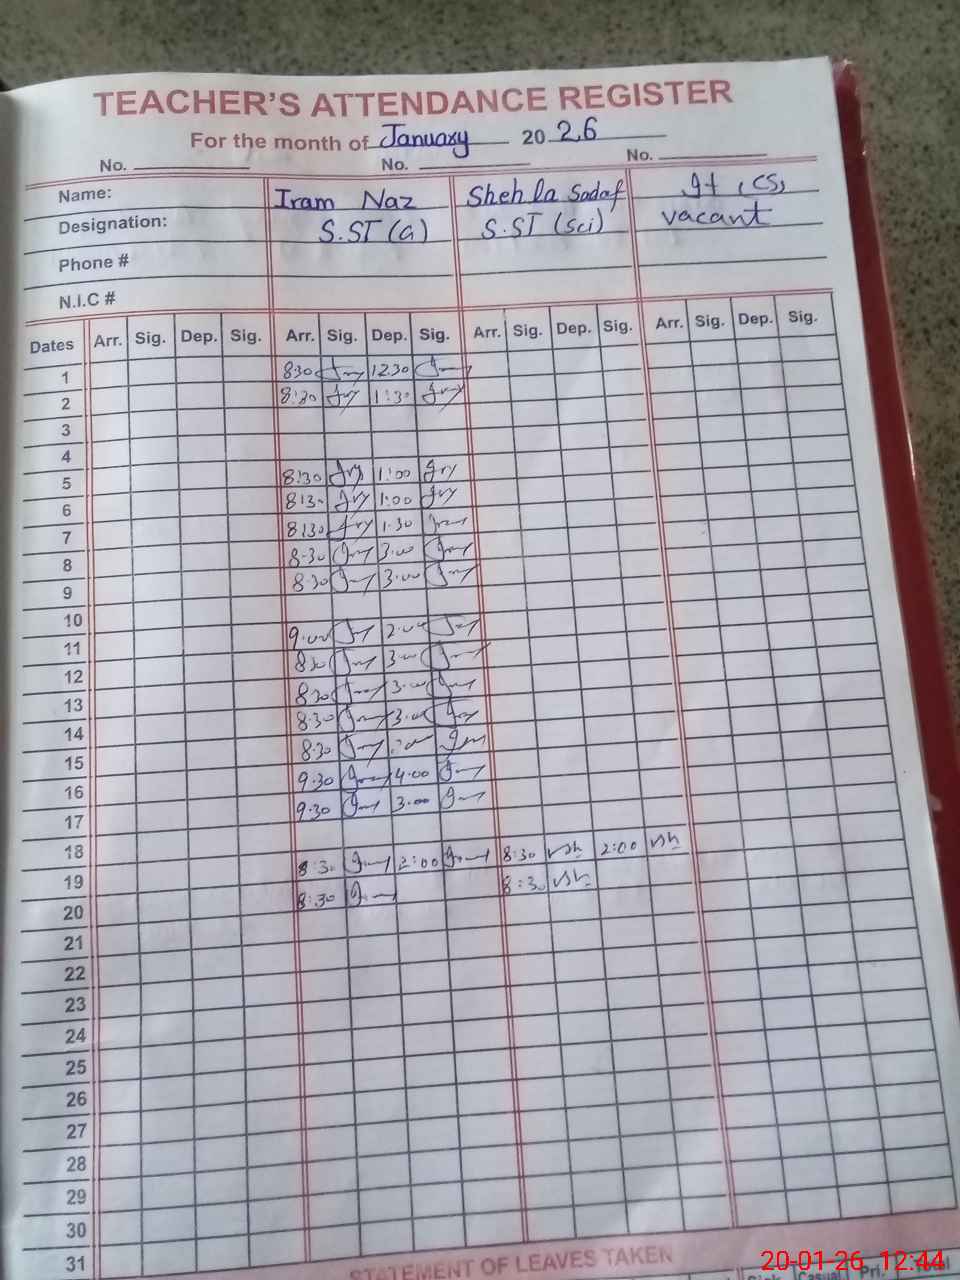 TEACHER'S ATTENDANCE REGISTER
For the month of January 2026
No. No. No.
Name: Iram Naz Shehla Sadaf It, CS,
Designation: S.ST (G) S.ST (Sci) vacant
Phone #
N.I.C #
Dates Arr. Sig. Dep. Sig. Arr. Sig. Dep. Sig. Arr. Sig. Dep. Sig. Arr. Sig. Dep. Sig.
1 830 12.30
2 8:30 1:30
3
4
5 8:30 1:00
6 8:30 1:00
7 8:30 1:30
8 8.30 3.00
9 8.30 3.00
10
11 9.00 2.00
12 830 3.00
13 830 3.00
14 8.30 3.00
15 8.30
16 9.30 4.00
17 9.30 3.00
18
19 8:30 2:00 8:30 2:00
20 8:30 8:30
21
22
23
24
25
26
27
28
29
30
31
STATEMENT OF LEAVES TAKEN
Sick Casual Pri. Total
20-01-26 12:44